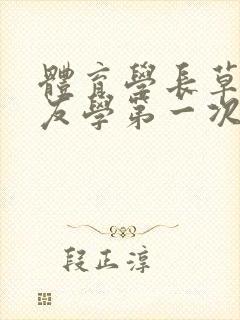 體育學長草
友學第一次
段正淳